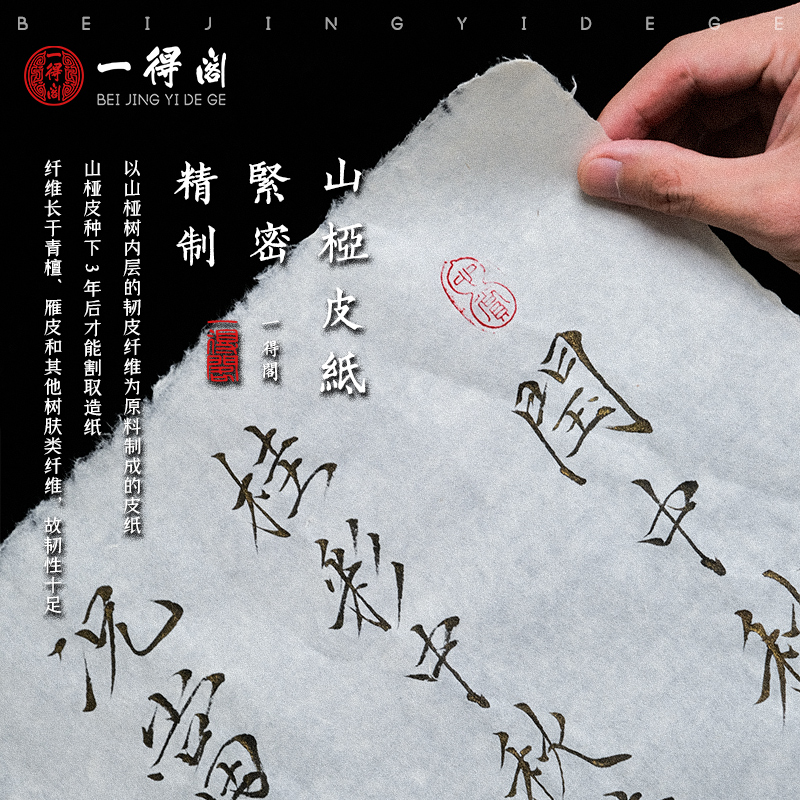 BEIJINGYIDEGE
一得阁
一得阁
BEI JING YI DE GE
山椏皮紙
緊密
精制
一得閣
一得閣
以山桠树内层的韧皮纤维为原料制成的皮纸
山桠皮种下3年后才能割取造纸
纤维长于青檀、雁皮和其他树肤类纤维，故韧性十足
閨
中
秋
桂
彩
中
秋
沉
富